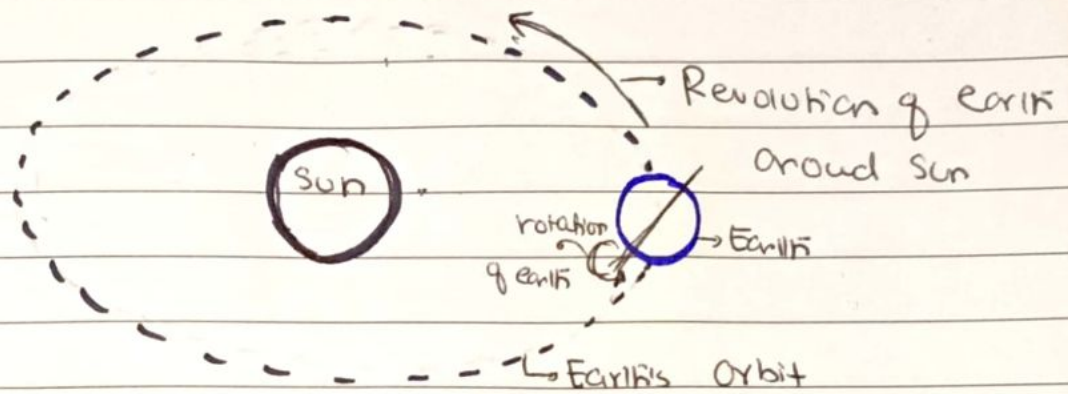 Revolution of earth
aroud sun
sun
rotation
of earth
Earth
Earth's orbit